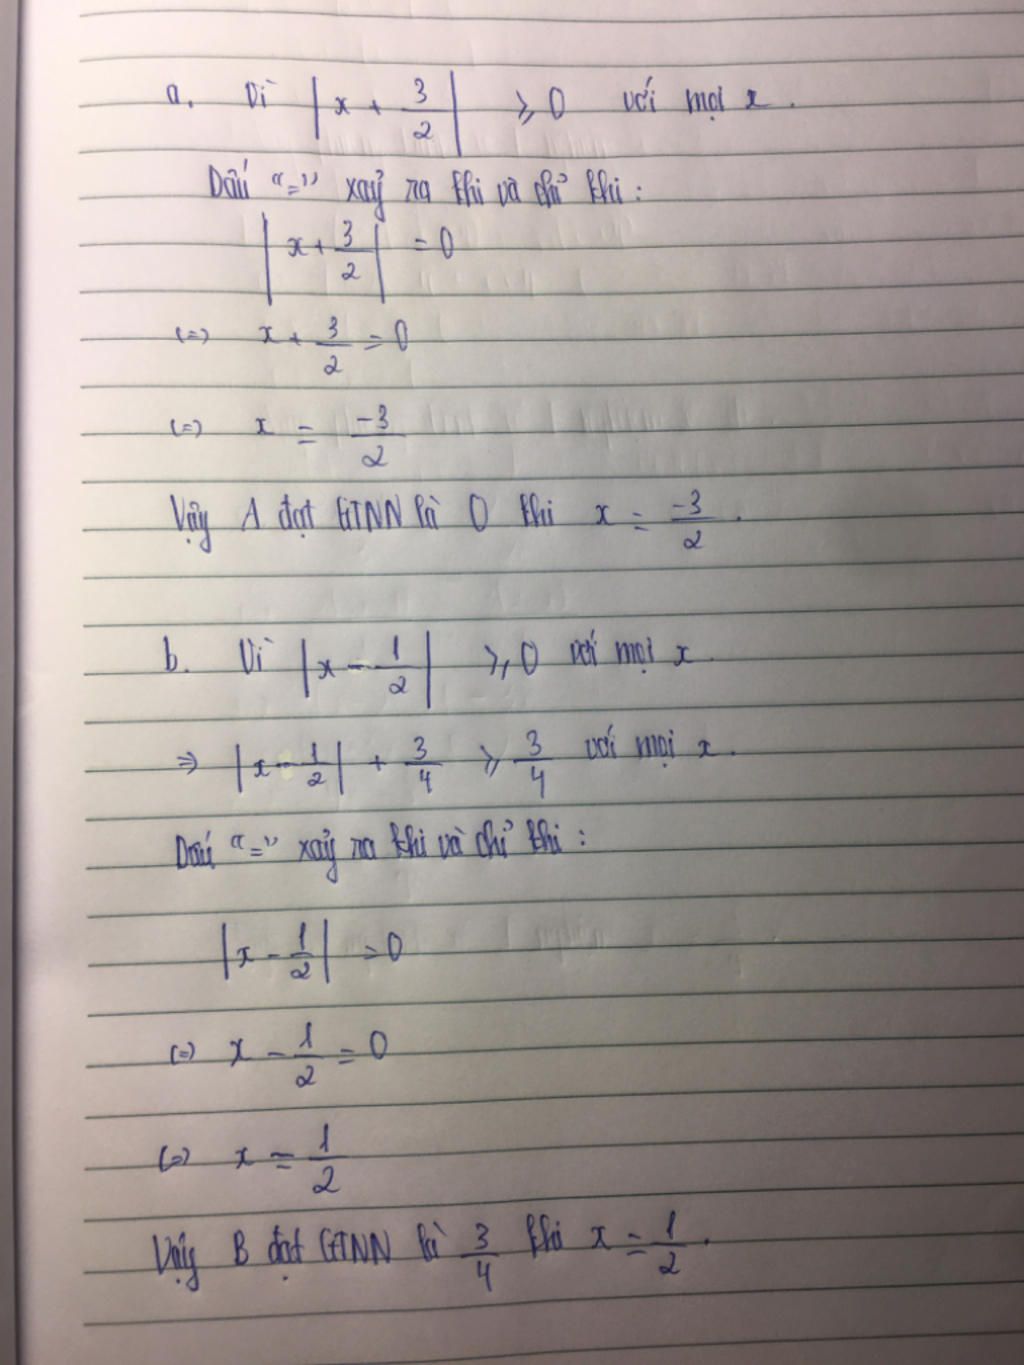 a. Vì |x + 3/2| ⩾ 0 với mọi x.
Dấu "=" xảy ra khi và chỉ khi :
|x + 3/2| = 0
(=) x + 3/2 = 0
(=) x = -3/2
Vậy A đạt GTNN là 0 khi x = -3/2.
b. Vì |x - 1/2| ⩾ 0 với mọi x.
⇒ |x - 1/2| + 3/4 ⩾ 3/4 với mọi x.
Dấu "=" xảy ra khi và chỉ khi :
|x - 1/2| = 0
(=) x - 1/2 = 0
(=) x = 1/2
Vậy B đạt GTNN là 3/4 khi x = 1/2.